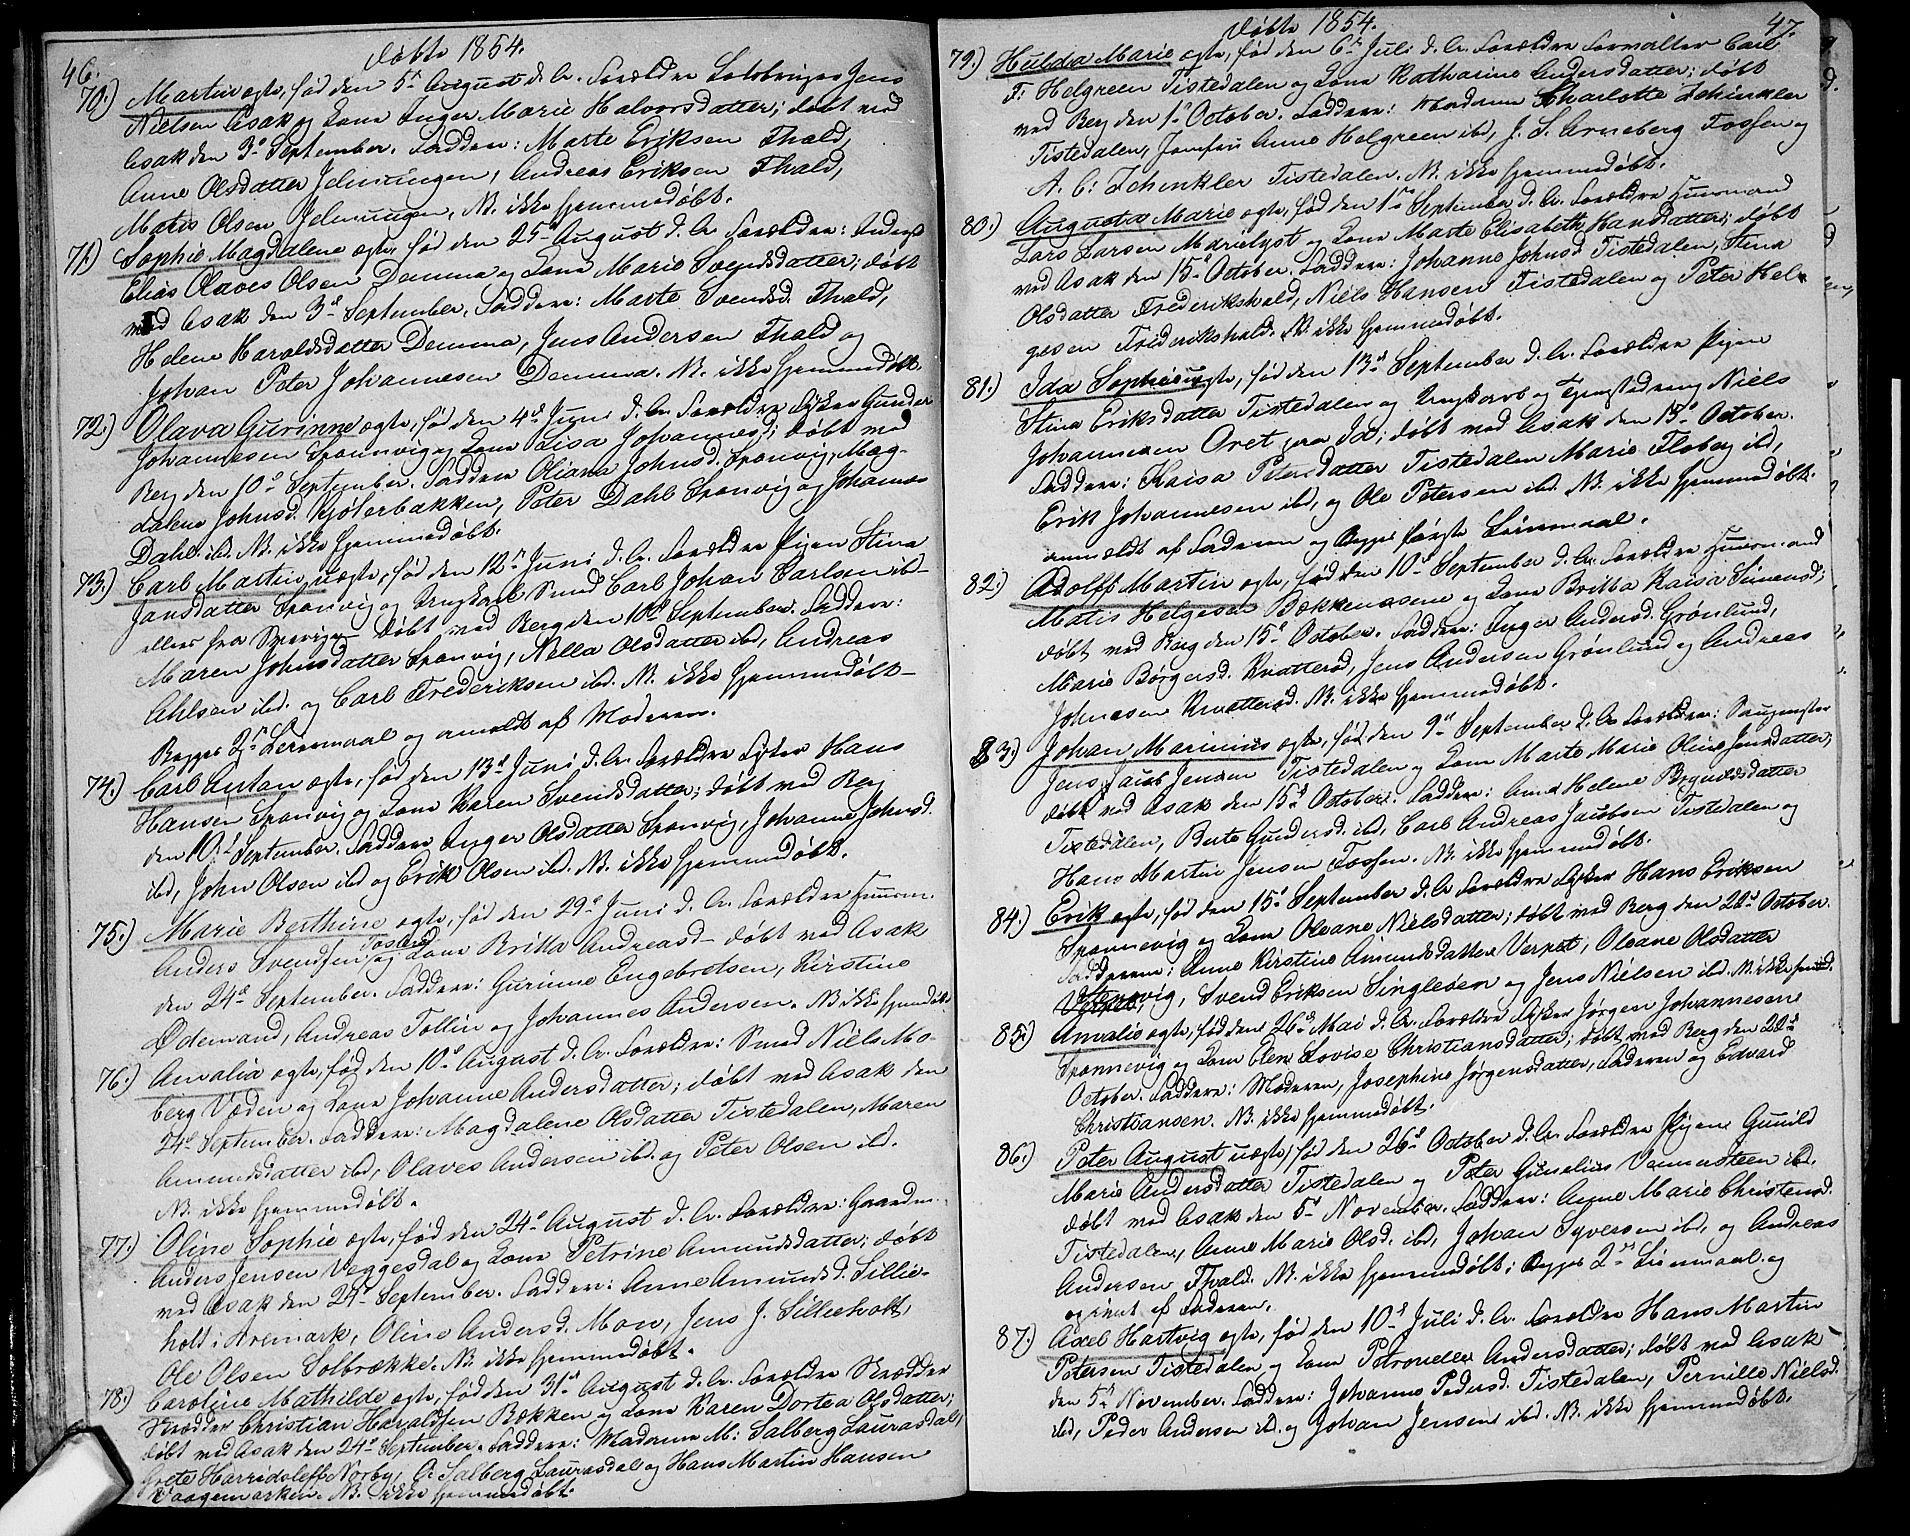 46.
Døbte 1854.
70.) Martin ægte, fød den 5te August d. A. Forældre Selvbruger Jens
Nielsen Asak og Kone Inger Marie Halvorsdatter; døbt ved
Asak den 3d September. Faddere: Marte Eriksen Thvald,
Anne Olsdatter Jelmungen, Andreas Eriksen Thvald,
Matis Olsen Jelmungen, NB. ikke hjemmedøbt.
71.) Sophie Magdalene ægte, fød den 25de August d. A. Forældre: Inderst
Elias Olaves Olsen Demma og Kone Marie Svendsdatter; døbt
ved Asak den 3d September. Faddere: Marte Svendsd. Thvald,
Helene Haraldsdatter Demma, Jens Andersen Thvald og
Johan Peter Johannesen Demma. NB. ikke hjemmedøbt.
72.) Olava Gurinne ægte, fød den 4de Juni d. A. Forældre Fisker Gunder
Johannesen Sponvig og Kone Lisa Johannesd; døbt ved
Berg den 10d September. Faddere Oliana Johnsd. Sponvig, Mag-
dalene Johnsd. Kjølerbakken, Peter Dahl Sponvig og Johannes
Dahl ibd. NB. ikke hjemmedøbt.
73.) Carl Martin uægte, fød den 12te Juni d. A. Forældre Pigen Stina
Jansdatter Sponvig og Ungkarl Smed Carl Johan Carlsen ibd
eller fra Sverige døbt ved Berg den 10d September. Faddere:
Maren Johnsdatter Sponvig, Nella Olsdatter ibd, Andreas
Ahlsen ibd. og Carl Frederiksen ibd. NB. ikke hjemmedøbt
Begges 2det Leiermaal og anmeldt af Moderen.
74.) Carl Anton ægte, fød den 13d Juni d. A. Forældre Fisker Hans
Hansen Sponvig og Kone Karen Svendsdatter; døbt ved Berg
den 10d September. Faddere Inger Olsdatter Sponvig, Johanne Johnsd.
ibd, John Olsen ibd og Erik Olsen ibd. NB. ikke hjemmedøbt.
75.) Marie Berthine ægte, fød den 29d Juni d. A. Forældre Huusm.
Anders Svendsen og Kone Britta Andreasd døbt ved Asak
den 24d September. Faddere: Gurinne Engebretsen, Kirstine
Ødemand, Andreas Tollin og Johannes Andersen. NB ikke hjemdøbt.
76.) Amalia ægte, fød den 10d August d. A. Forældre: Smed Niels Mo-
berg Veden og Kone Johanne Andersdatter; døbt ved Asak den
24d September. Faddere: Magdalene Olsdatter Tistedalen, Maren
Amundsdatter ibd, Olaves Andersen ibd. og Peter Olsen ibd.
NB. ikke hjemmedøbt.
77.) Oline Sophie ægte, fød den 24d August d. A. Forældre: Gaardm.
Anders Jensen Veggesdal og Kone Petrine Amundsdatter; døbt
ved Asak den 24d September. Faddere: Anne Amundsd. Sillie-
holt i Aremark, Oline Andersd. Mon, Jens J. Sillieholt,
Ole Olsen Solbrække. NB. ikke hjemmedøbt.
78.) Caroline Mathilde ægte, fød den 31d August d. A. Forældre Skrædder
Skrædder Christian Haraldsen Bækken og Kone Karen Dortea Olsdatter;
døbt ved Asak den 24d September. Faddere: Madame M: Salberg Laurasdal,
Grete Harridsleff Norby, A. Salberg Laurasdal og Hans Martin Hansen
NB. ikke hjemmedøbt.
47.
Døbte 1854.
79.) Hulda Marie ægte, fød den 6te Juli d. A. Forældre Forvalter Carl
F: Helgreen Tistedalen og Kone Katharine Andersdatter; døbt
ved Berg den 1d October. Faddere: Madame Charlotte Schinkler
Tistedalen, Jomfru Anne Helgreen ibd, J. S. Arneberg Fossen og
A. C: Schinkler Tistedalen. NB. ikke hjemmedøbt.
80.) Augusta Marie ægte, fød den 1ste September d. A. Forældre Huusmand
Lars Larsen Marielyst og Kone Marte Elisabeth Hansdatter; døbt
ved Asak den 15d October. Faddere: Johanne Johnsd Tistedalen, Stina
Olsdatter Frederikshald, Niels Hansen Tistedalen og Peter Hel-
gesen Frederikshald. NB. ikke hjemmedøbt.
81.) Ida Sophie uægte, fød den 13d September d. A. Forældre Pigen
Stina Eriksdatter Tistedalen og Ungkarl og Tjenestedreng Niels
Johannesen Oret fra Id; døbt ved Asak den 15d October.
Faddere: Kaisa Petersdatter Tistedalen Marie Floberg ibd,
Erik Johannesen ibd, og Ole Petersen ibd. NB. ikke hjemmedøbt.
anmeldt af Faderen og Begges første Leiermaal.
82.) Adolff Martin ægte, fød den 10d September d. A. Forældre Huusmand
Matis Helgesen Bækkenæsene og Kone Britta Kaisa Simensd;
døbt ved Berg den 15d October. Faddere: Inger Andersd. Grønlund,
Marie Børgersd. Kvatterød, Jens Andersen Grønlund og Andreas
Johnesen Kvatterød. NB. ikke hjemmedøbt.
83.) Johan Marinius ægte, fød den 9d September d. A. Forældre: Saugmester
Jens Jacob Jensen Tistedalen og Kone Marte Marie Oline Jensdatter;
døbt ved Asak den 15d October. Faddere: Anne Helene Brynildsdatter
Tistedalen, Berte Gundersd. ibd, Carl Andreas Jacobsen Tistedalen og
Hans Martin Jensen Fossen. NB. ikke hjemmedøbt.
84.) Erik ægte, fød den 15d September d. A. Forældre Fisker Hans Eriksen
Sponnevig og Kone Oleane Nielsdatter; døbt ved Berg den 22d October.
Fadderne: Anne Kirstine Amundsdatter Verpet, Oleane Olsdatter
Sponvig, Svend Eriksen Singleøen og Jens Nielsen ibd. NB. ikke hjemd.
85.) Amalie ægte, fød den 26d Mai d. A. Forældre Fisker Jørgen Johannesen
Sponnevig og Kone Elen Lovise Christiansdatter; døbt ved Berg den 22d
October. Faddere: Moderen, Josephine Jørgensdatter, Faderen og Edvard
Christiansen. NB. ikke hjemmedøbt.
86.) Peter August uægte, fød den 26d October d. A. Forældre Pigen Gunild
Marie Andersdatter Tistedalen og Peter Gunelius Vennersteen ibd.
døbt ved Asak den 5d November. Faddere: Anne Marie Christensd.
Tistedalen, Anne Marie Olsd. ibd, Johan Syversen ibd, og Andreas
Andersen Thvald. NB. ikke hjemmedøbt; Begges 2det Leiermaal og
opgivet af Faderen.
87.) Axel Hartvig ægte, fød den 10d Juli d. A. Forældre Hans Martin
Petersen Tistedalen og Kone Petronelle Andersdatter; døbt ved Asak
den 5d November. Faddere: Johanne Pedersd. Tistedalen, Pernille Nielsd.
ibd, Peder Andersen ibd. og Johan Jensen ibd. NB. ikke hjemmedøbt.